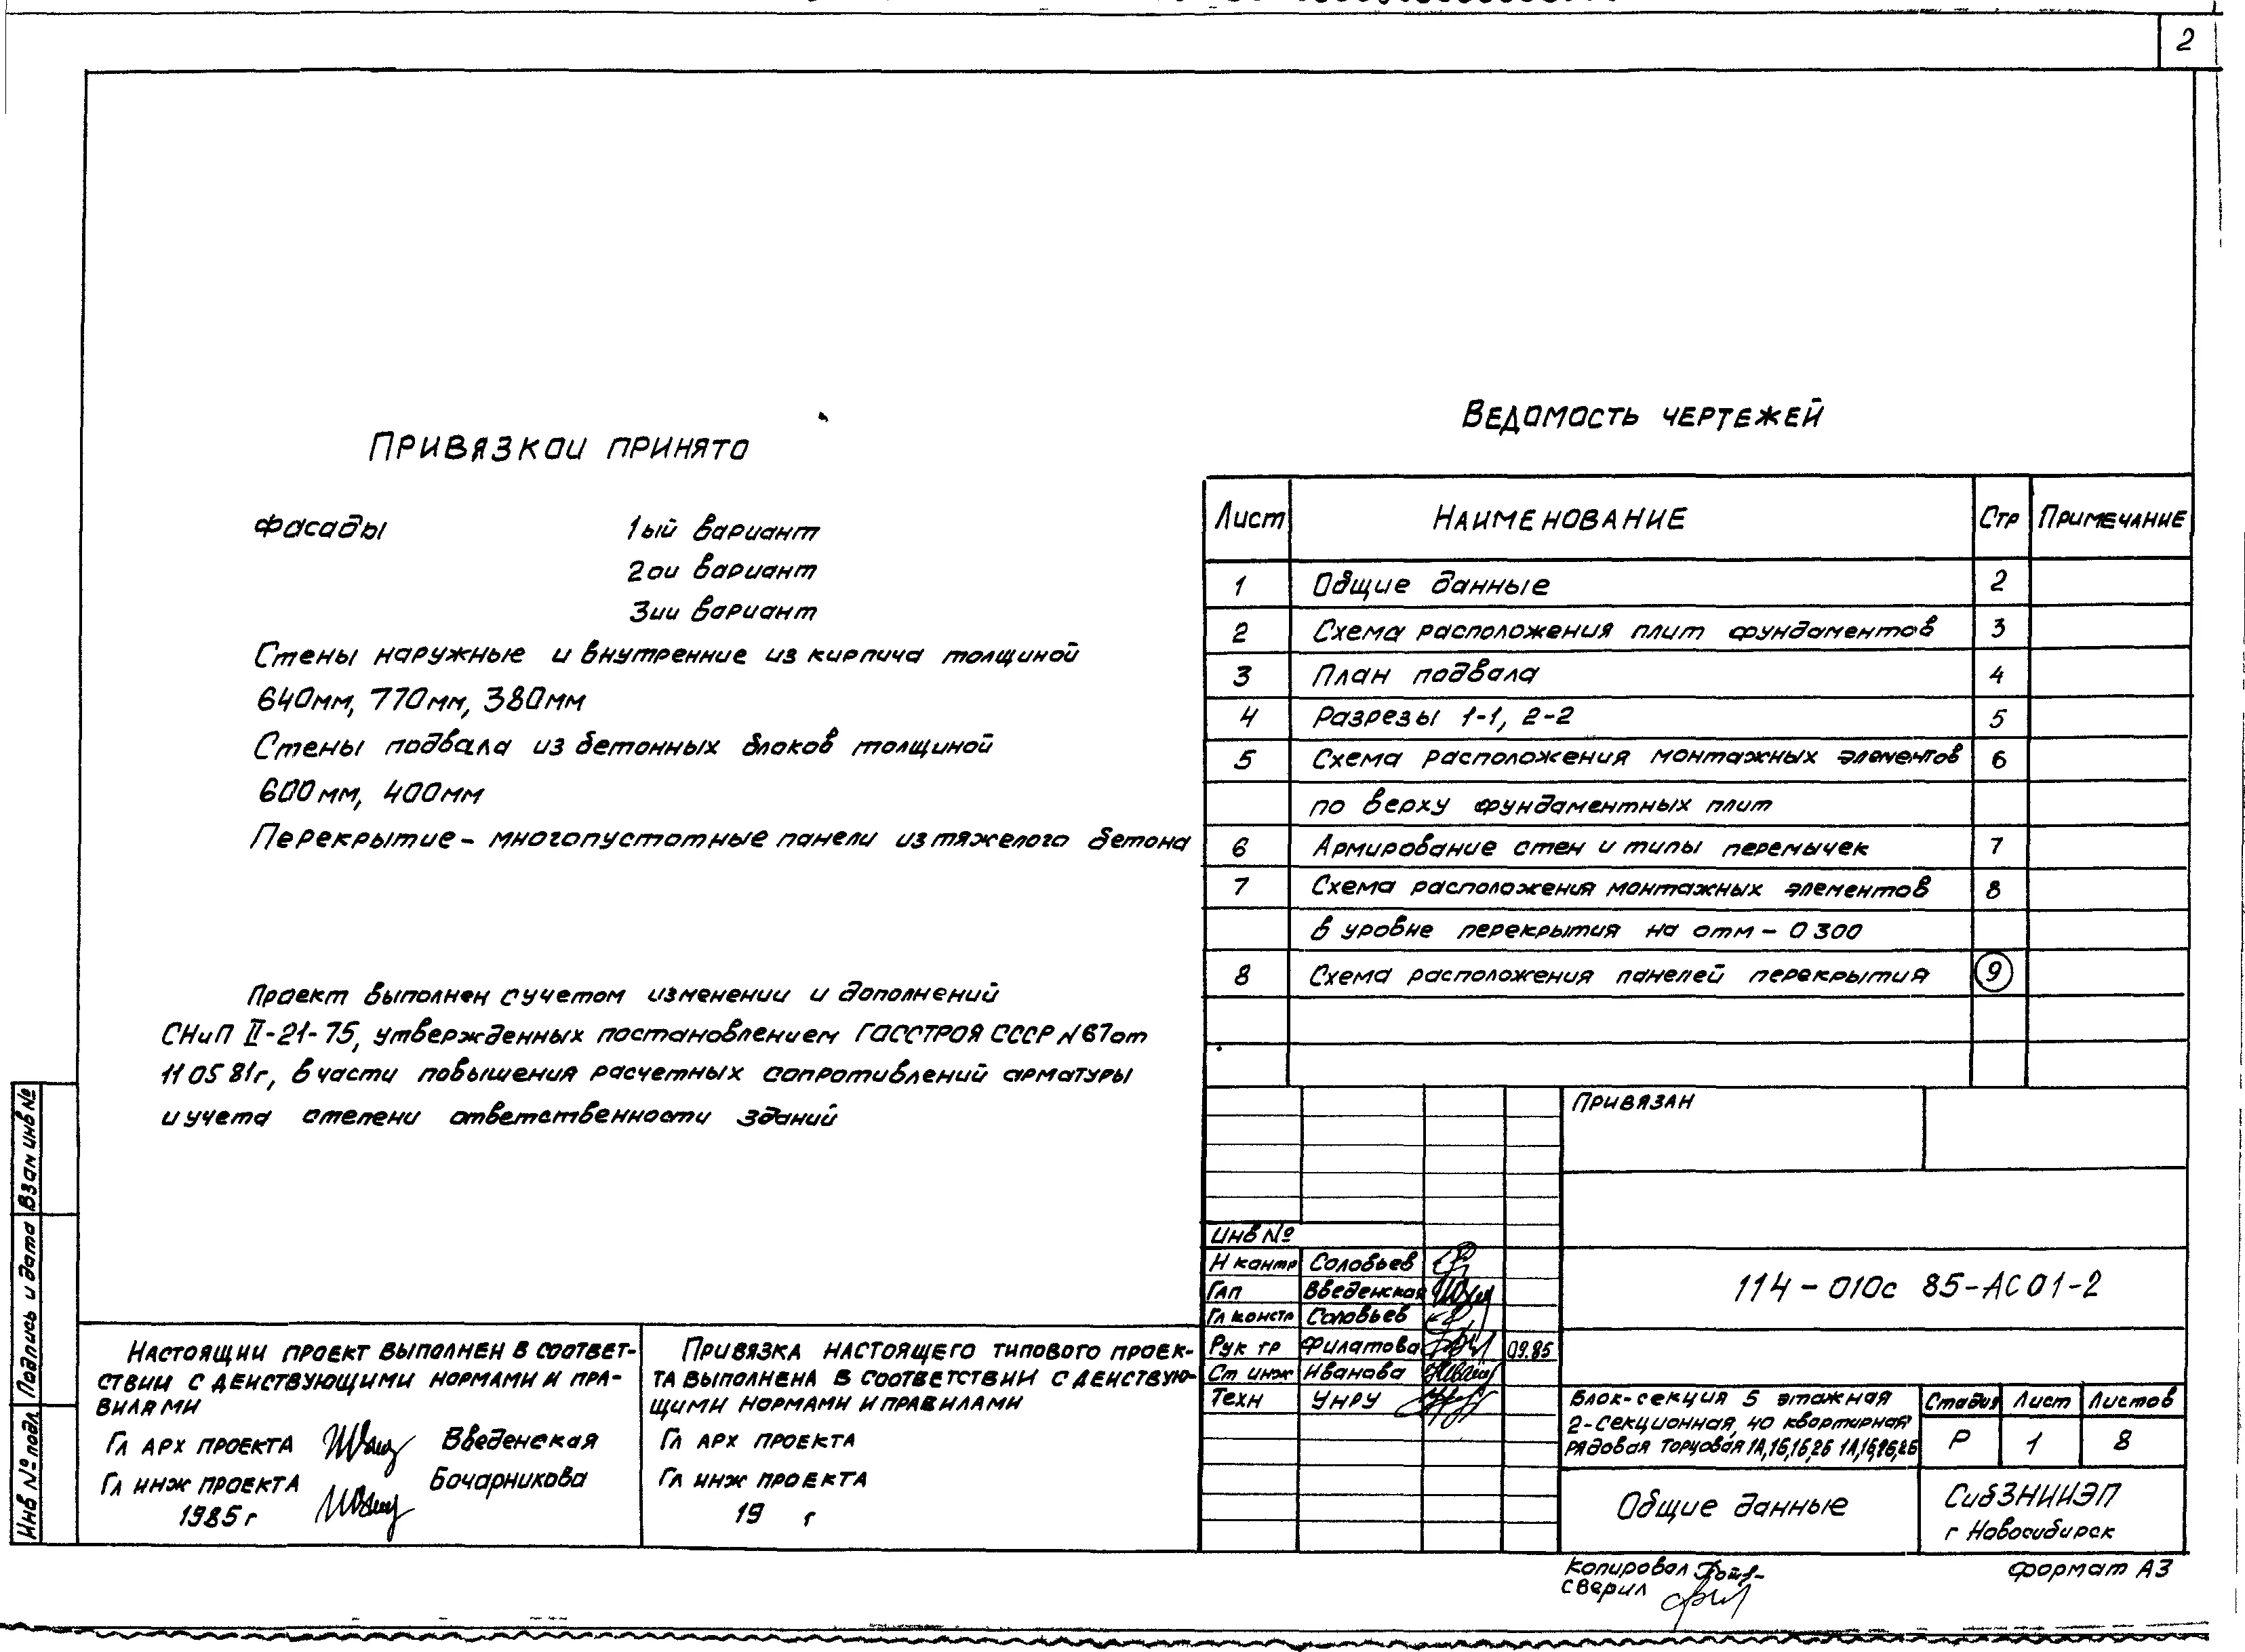 2
ПРИВЯЗКОИ ПРИНЯТО
Фасады 1ый вариант
2ои вариант
3ии вариант
Стены наружные и внутренние из кирпича толщиной
640мм, 770мм, 380мм
Стены подвала из бетонных блоков толщиной
600мм, 400мм
Перекрытие – многопустотные панели из тяжелого бетона
Проект выполнен с учетом изменении и дополнений
СНиП II-21-75, утвержденных постановлением ГОССТРОЯ СССР N67 от
11 05 81г, в части повышения расчетных сопротивлений арматуры
и учета степени ответственности зданий
ВЕДОМОСТЬ ЧЕРТЕЖЕЙ
Лист НАИМЕНОВАНИЕ Стр ПРИМЕЧАНИЕ
1 Общие данные 2
2 Схема расположения плит фундаментов 3
3 План подвала 4
4 Разрезы 1-1, 2-2 5
5 Схема расположения монтажных элементов 6
по верху фундаментных плит
6 Армирование стен и типы перемычек 7
7 Схема расположения монтажных элементов 8
в уровне перекрытия на отм – 0 300
8 Схема расположения панелей перекрытия 9
ПРИВЯЗАН
Инв №
Н контр Соловьев
ГАП Введенская
Гл констр Соловьев
Рук гр Филатова 09.85
Ст инж Иванова
Техн Унру
114 – 010с 85-АС 01-2
Блок-секция 5 этажная
2-секционная, 40 квартирная
рядовая торцовая 1А,1Б,1б,2Б 1А,1Б,2Б
Стадия Лист Листов
Р 1 8
Общие данные
СибЗНИИЭП
г Новосибирск
Копировал
Сверил
Формат А3
НАСТОЯЩИИ ПРОЕКТ ВЫПОЛНЕН В СООТВЕТ-
СТВИИ С ДЕИСТВУЮЩИМИ НОРМАМИ И ПРА-
ВИЛАМИ
ГЛ АРХ ПРОЕКТА Введенская
ГЛ ИНЖ ПРОЕКТА Бочарникова
1985 г
ПРИВЯЗКА НАСТОЯЩЕГО ТИПОВОГО ПРОЕК-
ТА ВЫПОЛНЕНА В СООТВЕТСТВИИ С ДЕИСТВУЮ-
ЩИМИ НОРМАМИ И ПРАВИЛАМИ
ГЛ АРХ ПРОЕКТА
ГЛ ИНЖ ПРОЕКТА
19 г
Инв № подл Подпись и дата Взам инв №